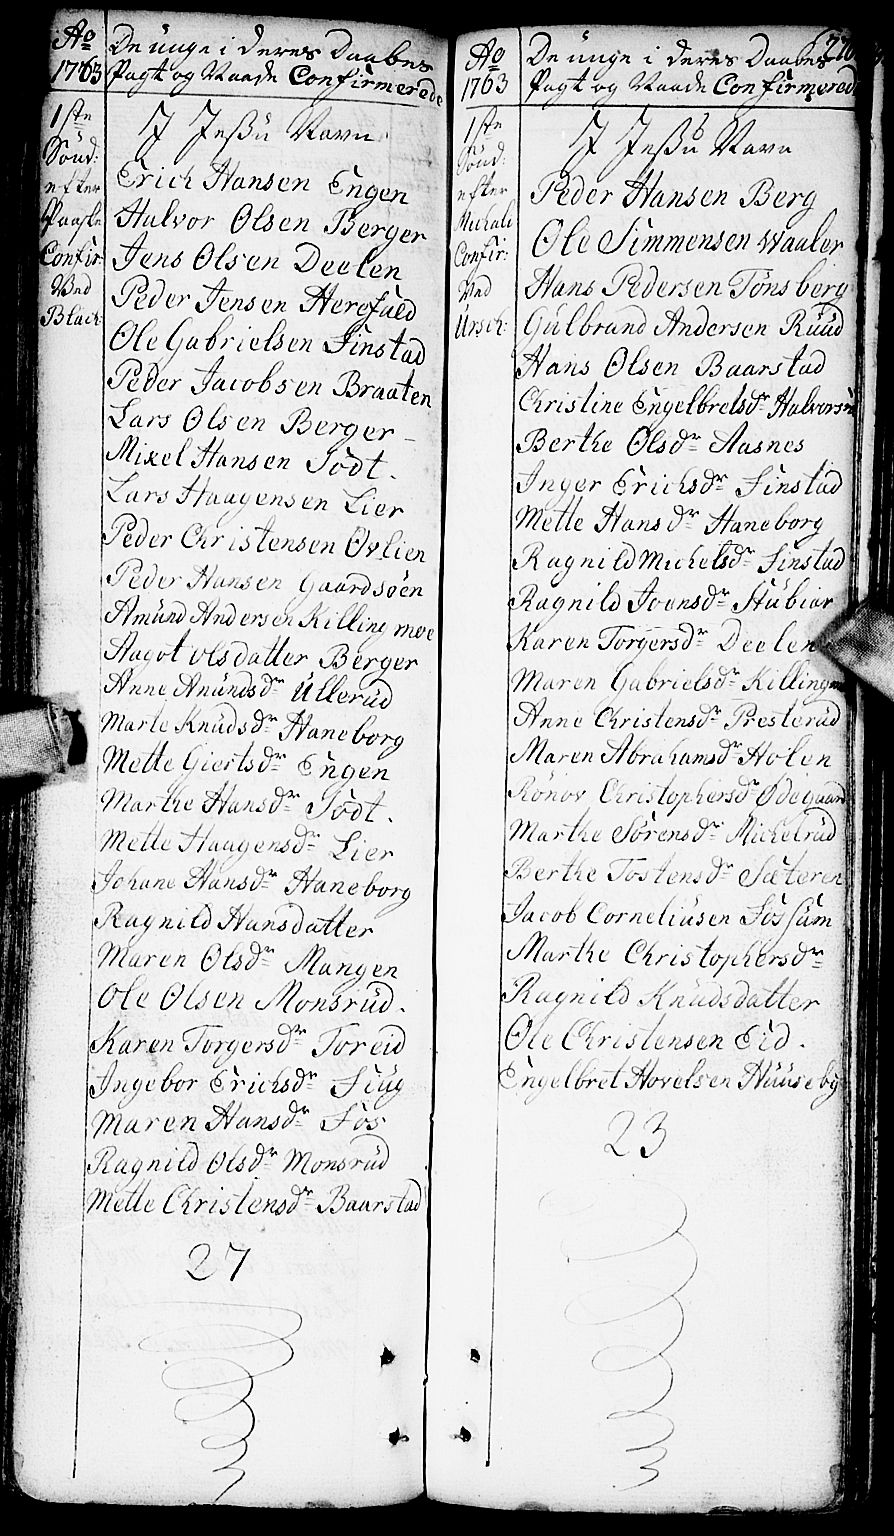 Ao 1763
De unge i deres Daabes
Pagt og Naade Confirmerede
1ste
Sönd:
efter
Paaske
Confir:
Ved
Blach:
J Jessu Navn
Erich Hansen Engen
Halvor Olsen Berger
Jens Olsen Deelen
Peder Jensen Herefald
Ole Gabrielsen Finstad
Peder Jacobsen Braaten
Lars Olsen Berger
Mixel Hansen Södt.
Lars Haagensen Lier
Peder Christensen Övlien
Peder Hansen Gaardsöen
Amünd Andersen Killingmoe
Aagot olsdatter Berger
Anne Anündsdr Üllerüd
Marte Knüdsdr Haneborg
Mette Giertsdr Engen
Marthe Hansdr Södt.
Mette Haagensdr Lier
Johane Hansdr Haneborg
Ragnild Hansdatter
Maren Olsdr Mangen
Ole Olsen Monsrüd.
Karen Torgersdr Toreid
Ingebor Erichsdr Fiüg
Maren Hansdr Fos
Ragnild Olsdr Monsrüd
Mette Christensdr Baarstad
27
Ao 1763
De unge i deres Daabes
Pagt og Naade Confirmered
1ste
Sönd:
efter
Michali
Confir:
Ved
Ürsch:
J Jessu Navn
Peder Hansen Berg
Ole Simmensen Waaler
Hans Pedersen Tönsberg
Gülbrand Andersen Rüüd
Hans Olsen Baarstad
Christine Engelbretsdr
Berthe Olsdr Aasnes
Inger Erichsdr Finstad
Mette Hansdr Haneborg
Ragnild Michelsdr Finstad
Ragnild Joensdr Stübiar
Karen Torgersdr Deelen
Maren Gabrielsdr
Anne Christensdr Presterüd
Maren Abrahamsdr Holen
Rönov Christophersdr Ödegaard
Marthe Sörensdr Michelrüd
Berthe Tostensdr Sæteren
Jacob Corneliüsen Fossüm
Marthe Christophersdr
Ragnild Knüdsdatter
Ole Christensen Eid.
Engelbret Hovelsen Hüüseby
23